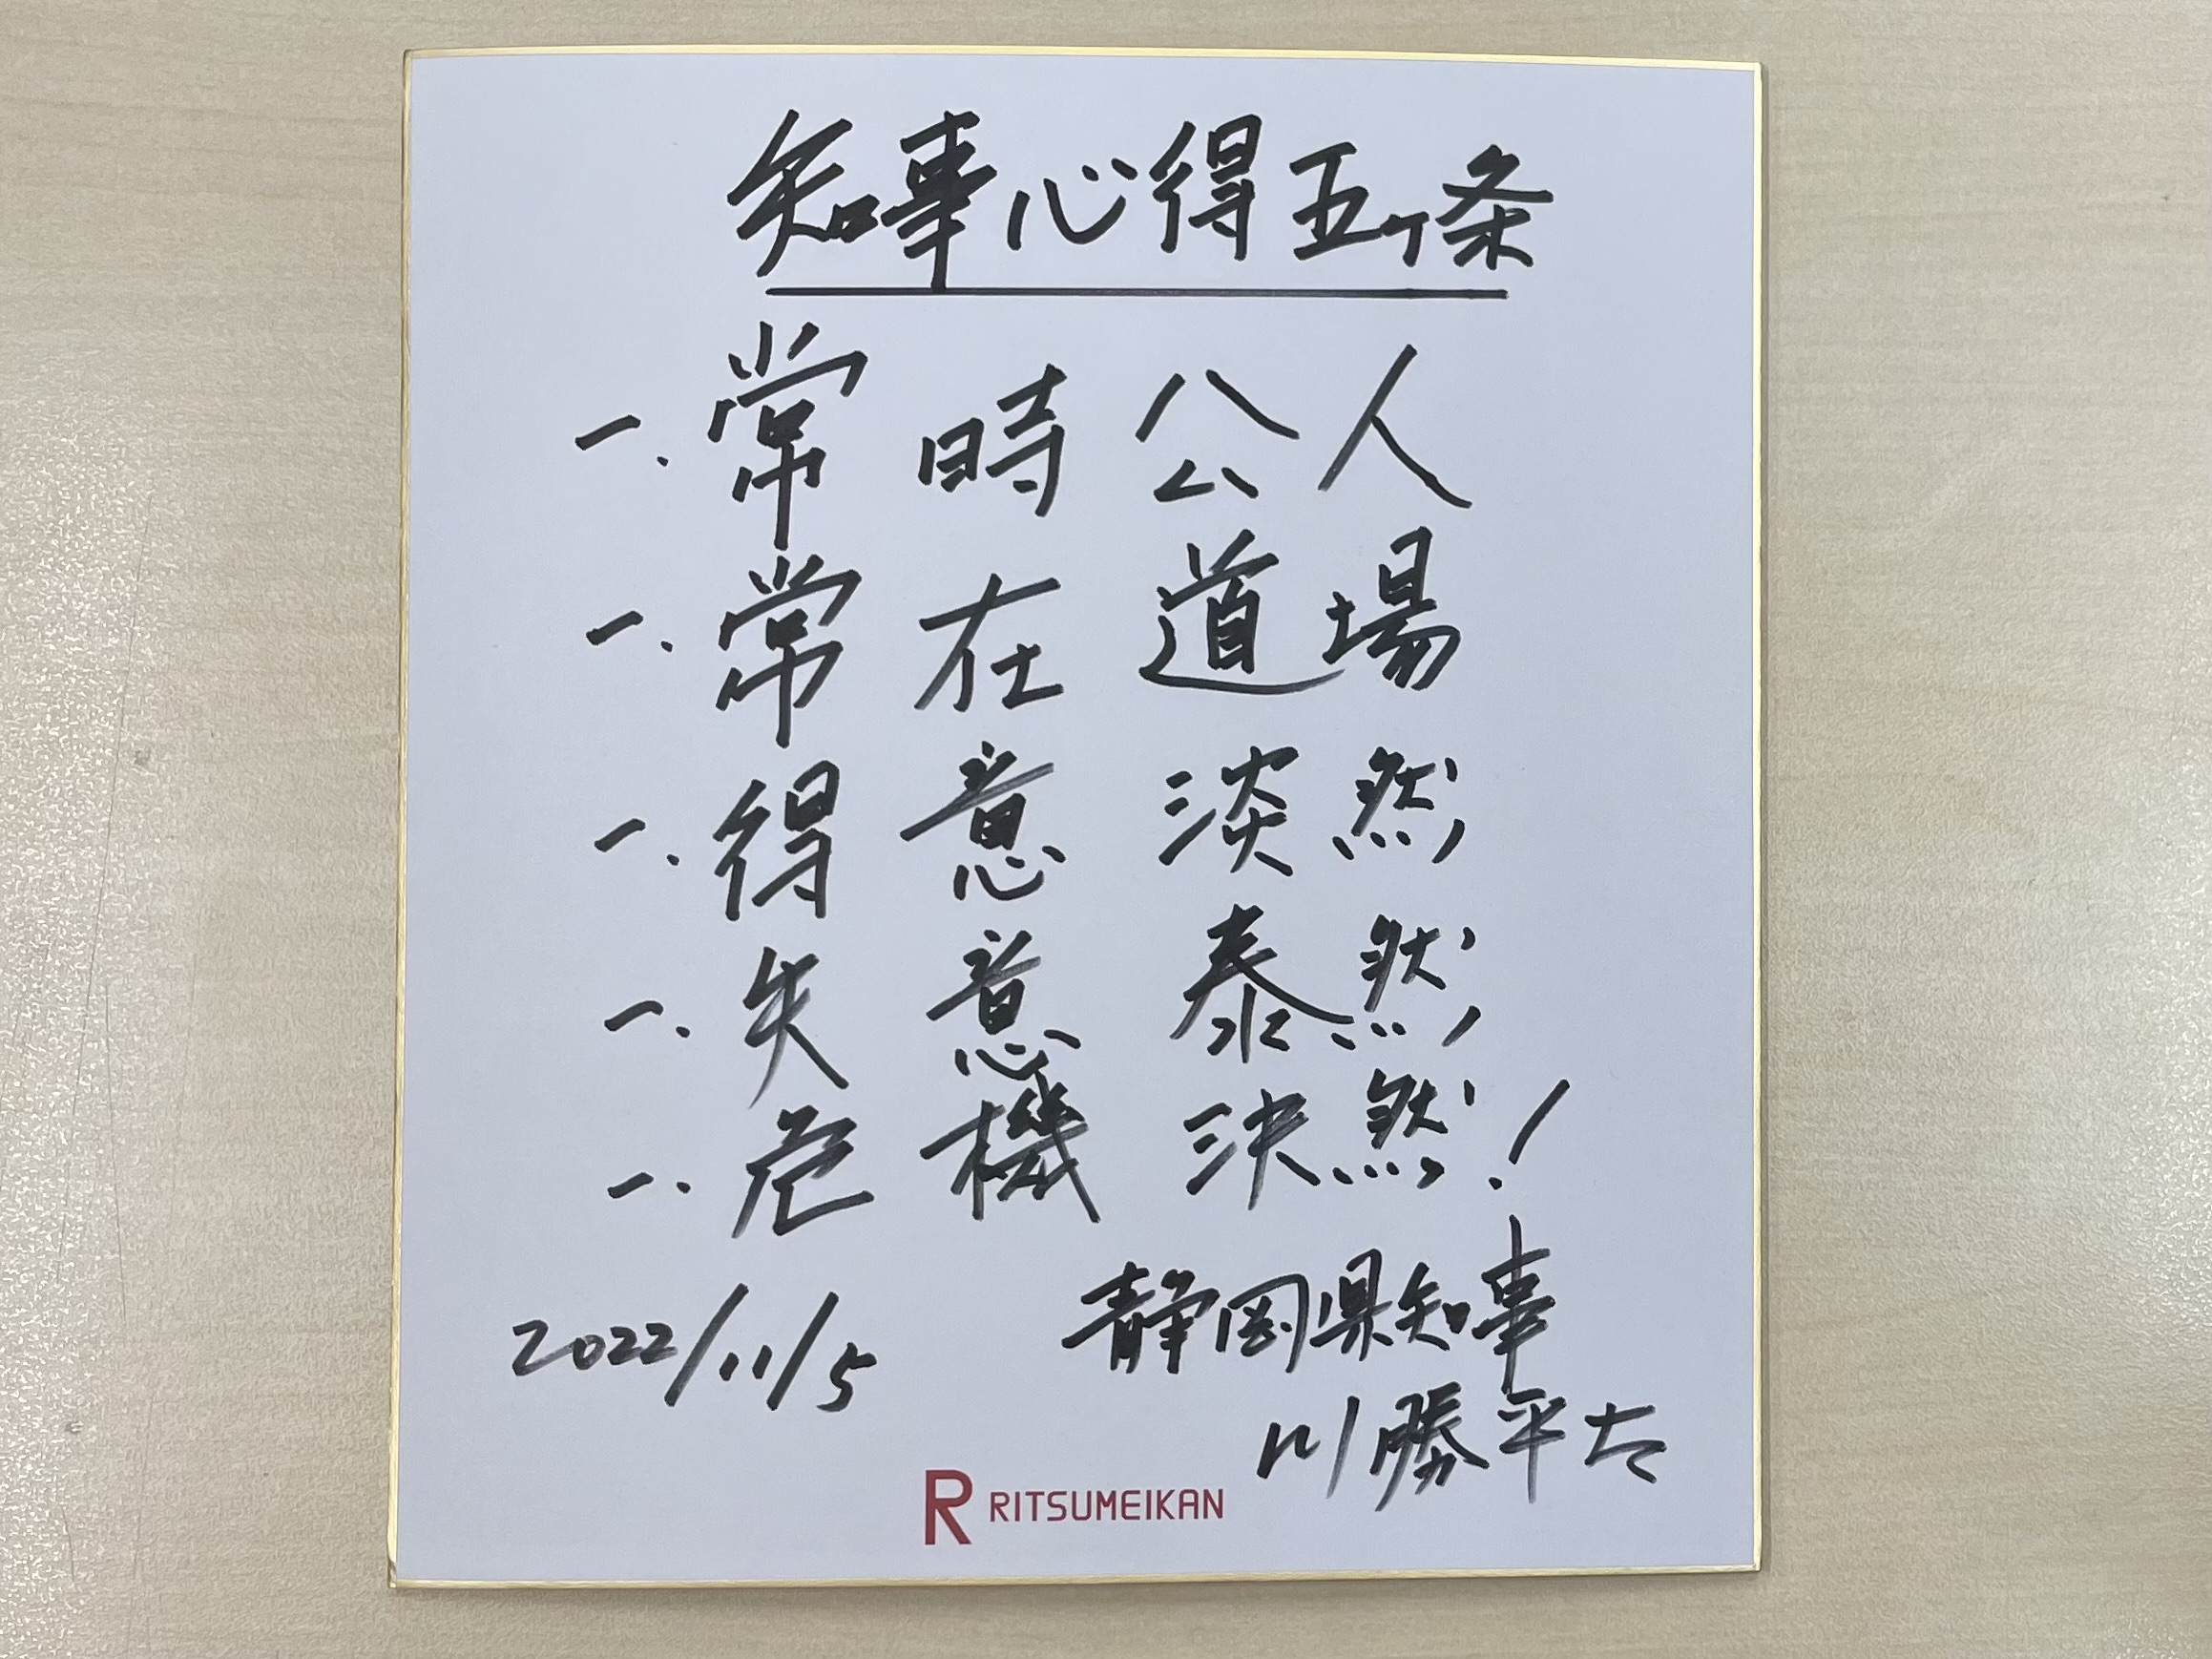 知事心得五ヶ条
一.常時公人
一.常在道場
一.得意淡然
一.失意泰然
一.危機決然!
2022/11/5
静岡県知事
川勝平太
R RITSUMEIKAN